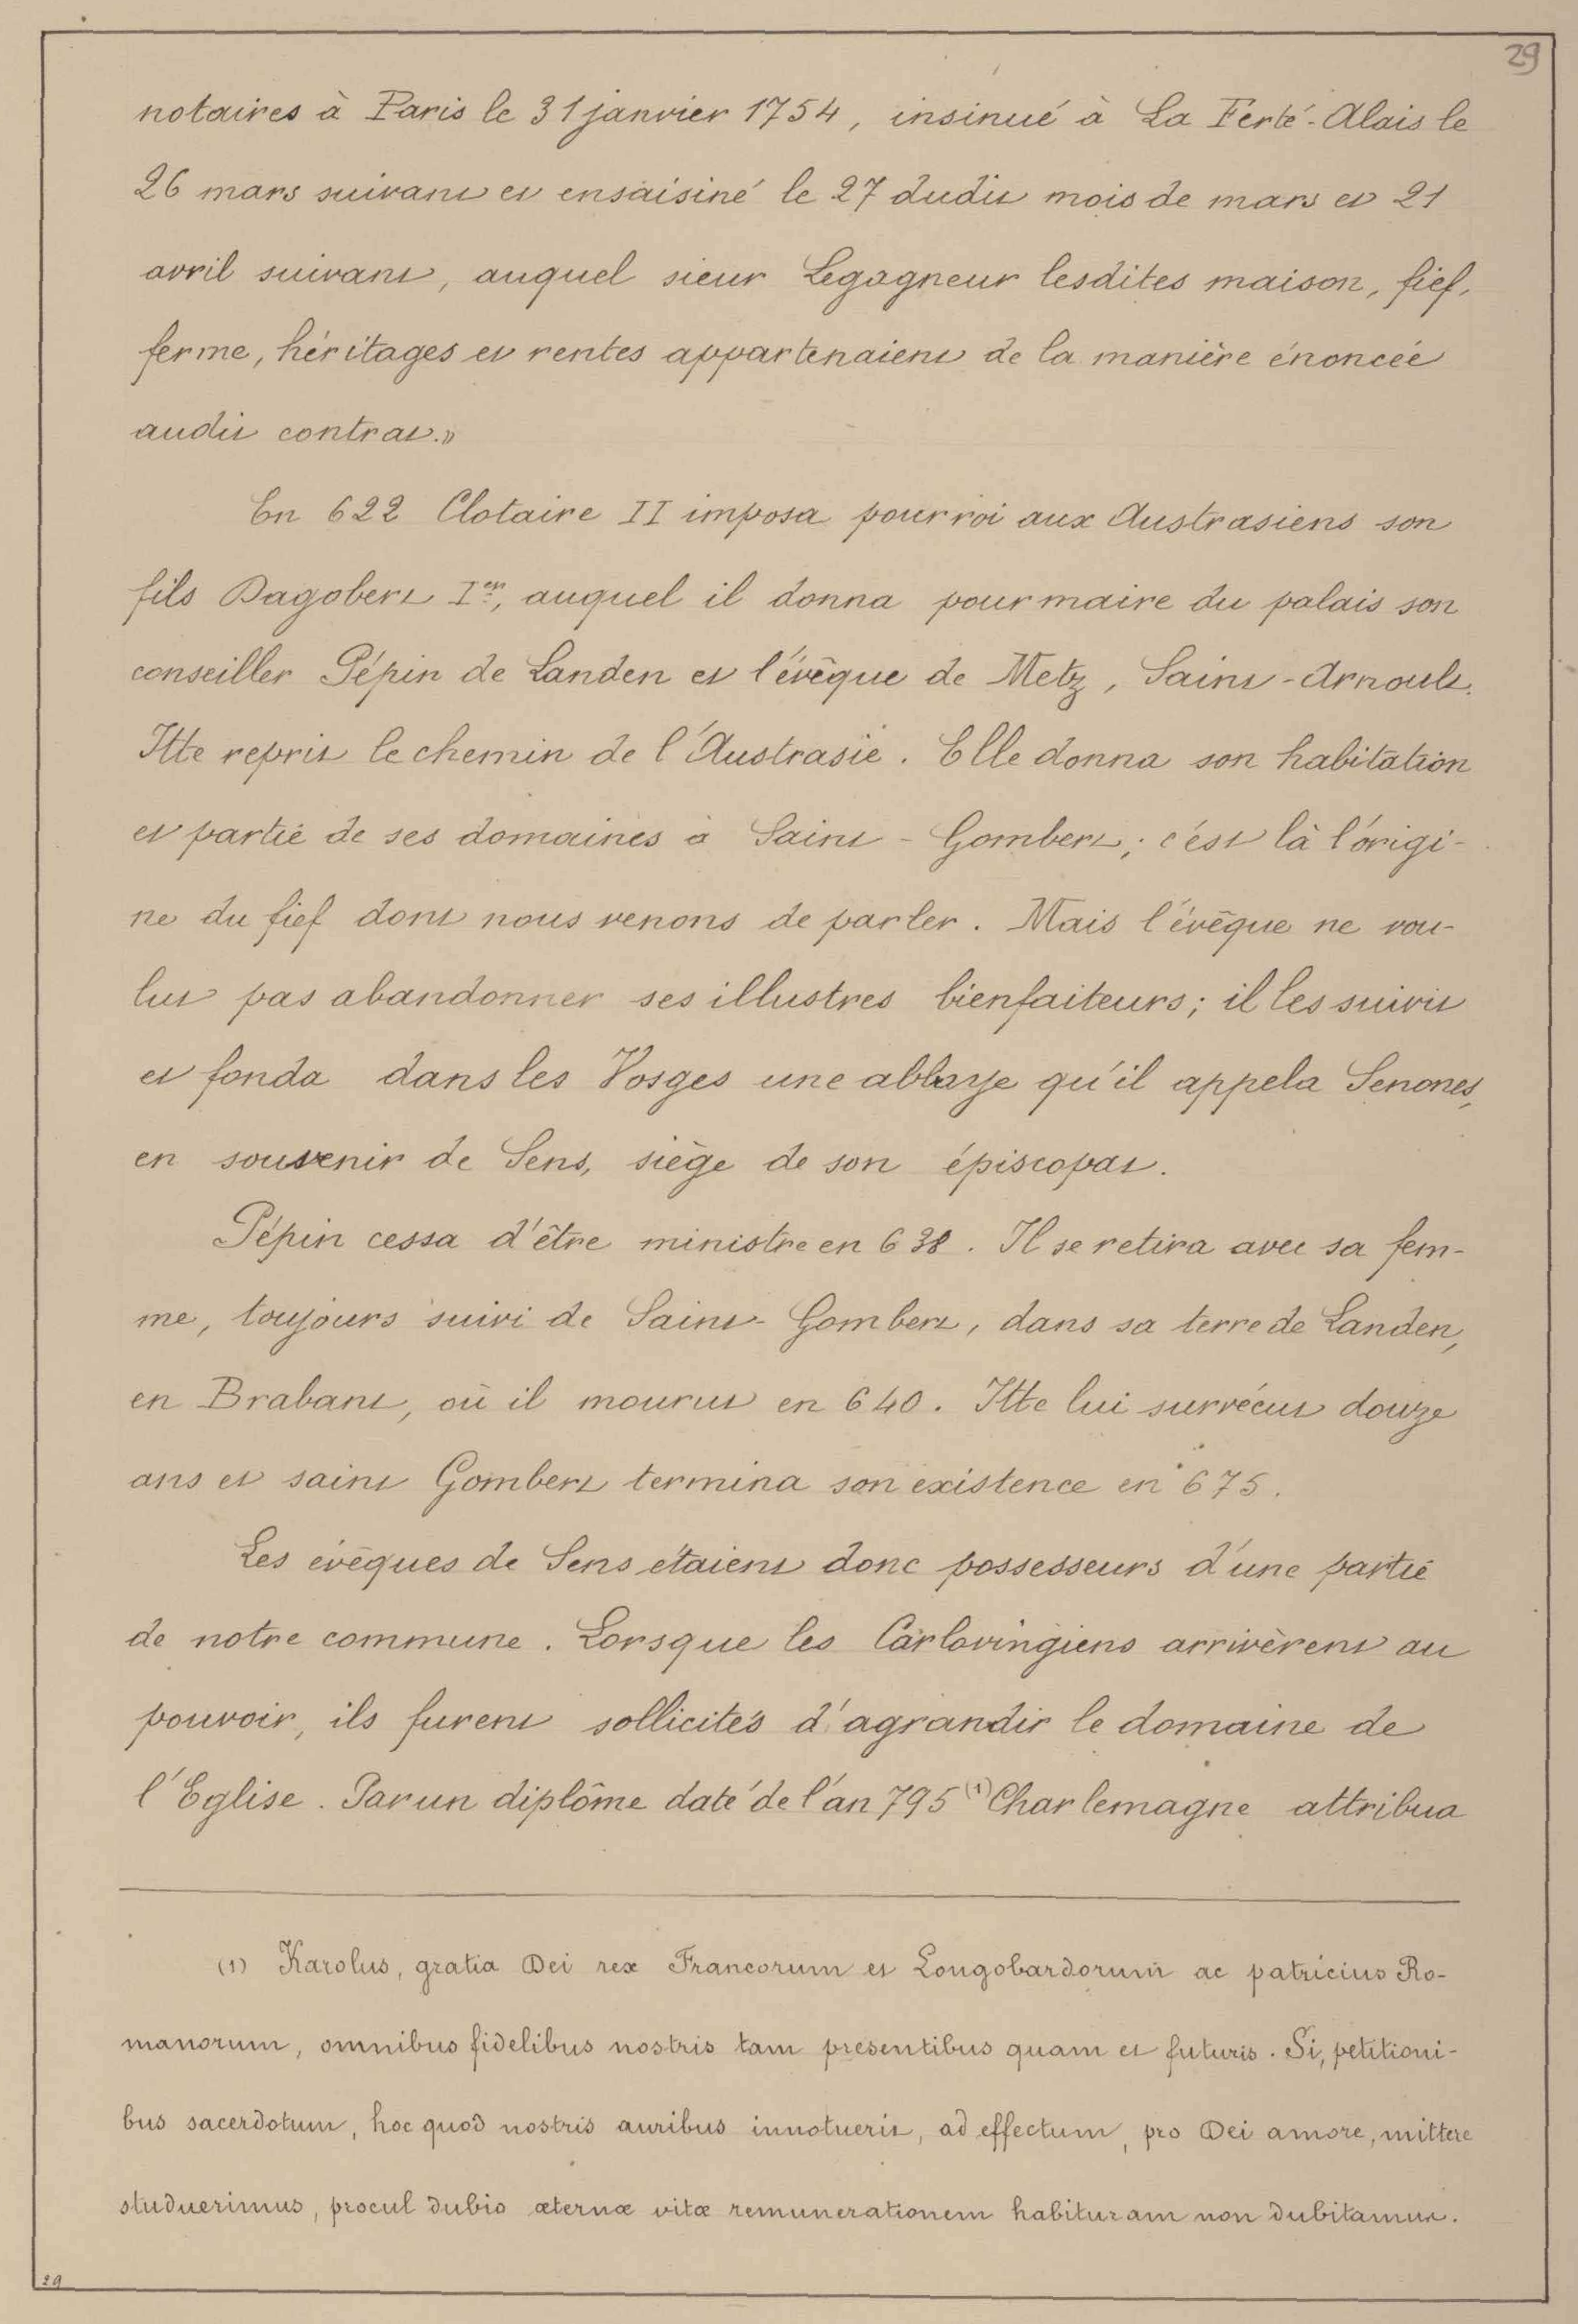 29
notaires à Paris le 31 janvier 1754, insinué à La Ferté-Alais le
26 mars suivant et ensaisiné le 27 dudit mois de mars et 21
avril suivant, auquel sieur Legagneur lesdites maison, fief,
ferme, héritages et rentes appartenaient de la manière énoncée
audit contrat.»
En 622 Clotaire II imposa pour roi aux Austrasiens son
fils Dagobert Ier, auquel il donna pour maire du palais son
conseiller Pépin de Landen et l'évêque de Metz, Saint-Arnoult.
Itte reprit le chemin de l'Austrasie. Elle donna son habitation
et partie de ses domaines à Saint-Gombert; c'est là l'origi-
ne du fief dont nous venons de parler. Mais l'évêque ne vou-
lut pas abandonner ses illustres bienfaiteurs; il les suivit
et fonda dans les Vosges une abbaye qu'il appela Senones,
en souvenir de Sens, siège de son épiscopat.
Pépin cessa d'être ministre en 638. Il se retira avec sa fem-
me, toujours suivi de Saint-Gombert, dans sa terre de Landen,
en Brabant, où il mourut en 640. Itte lui survécut douze
ans et saint Gombert termina son existence en 675.
Les évêques de Sens étaient donc possesseurs d'une partie
de notre commune. Lorsque les Carlovingiens arrivèrent au
pouvoir, ils furent sollicités d'agrandir le domaine de
l'Eglise. Par un diplôme daté de l'an 795 (1) Charlemagne attribua
(1) Karolus, gratia Dei rex Francorum et Longobardorum ac patricius Ro-
manorum, omnibus fidelibus nostris tam presentibus quam et futuris. Si, petitioni-
bus sacerdotum, hoc quod nostris auribus innotuerit, ad effectum, pro Dei amore, mittere
studuerimus, procul dubio æternæ vitæ remunerationem habituram non dubitamus.
29